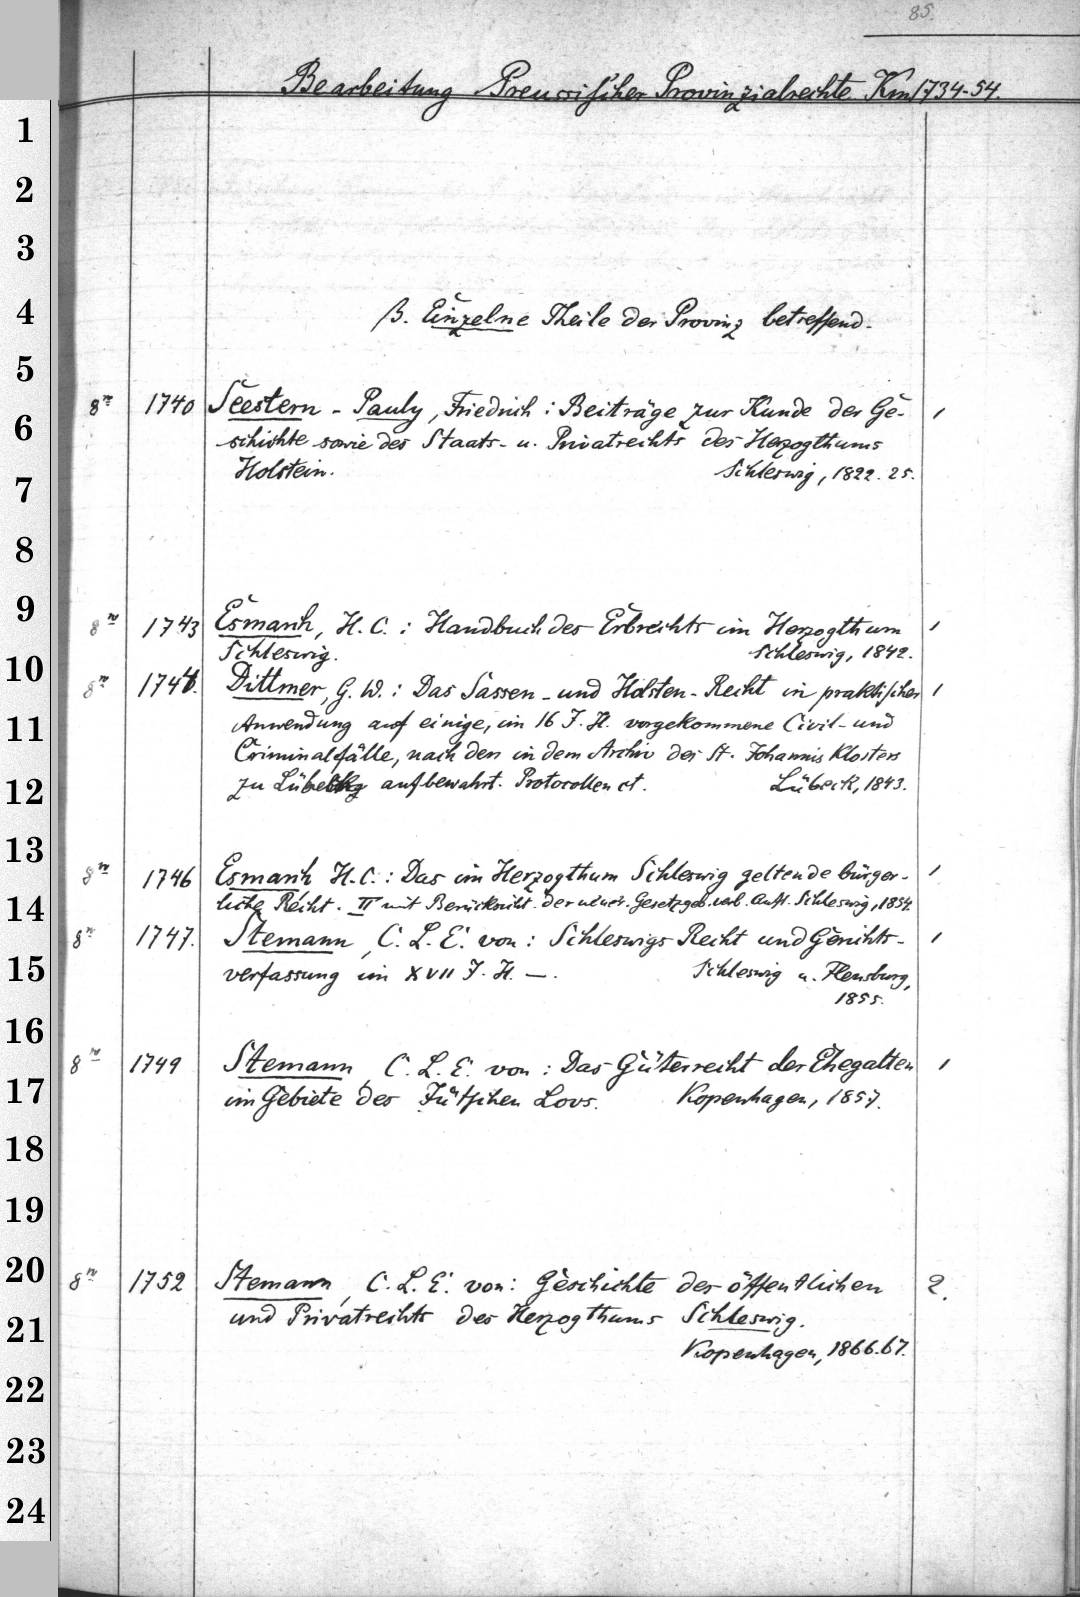 85.
Bearbeitung Preussischer Provinzialrechte. Km 1734-54.
1
2
3
4
β. Einzelne Theile der Provinz betreffend.
5
8° 1740 Seestern-Pauly, Friedrich: Beiträge zur Kunde der Ge- 1
6
schichte sowie des Staats- u. Privatrechts des Herzogthums
Holstein. Schleswig, 1822.25.
7
8
9
8° 1743 Esmarch, H. C.: Handbuch des Erbrechts im Herzogthum 1
Schleswig. Schleswig, 1842.
10
8° 1744. Dittmer, G. W.: Das Sassen- und Holsten-Recht in praktischer 1
Anwendung auf einige, im 16 J. H. vorgekommene Civil- und
11
Criminalfälle, nach den in dem Archiv des St. Johannis Klosters
zu Lübeck aufbewahrt. Protocollen et. Lübeck, 1843.
12
13
8° 1746 Esmarch H. C.: Das im Herzogthum Schleswig geltende bürger- 1
14
liche Recht. II mit Berücksicht. der neuer. Gesetzgeb. verb. Aufl. Schleswig, 1854.
8° 1747. Stemann, C. L. E. von: Schleswigs Recht und Gerichts- 1
15
verfassung im XVII J. H. —. Schleswig u. Flensburg,
1855.
16
8° 1749 Stemann, C. L. E. von: Das Güterrecht der Ehegatten 1
17
im Gebiete des Jütschen Lovs. Kopenhagen, 1857.
18
19
20
8° 1752 Stemann, C. L. E. von: Geschichte des öffentlichen 2.
21
und Privatrechts des Herzogthums Schleswig.
Kopenhagen, 1866.67.
22
23
24